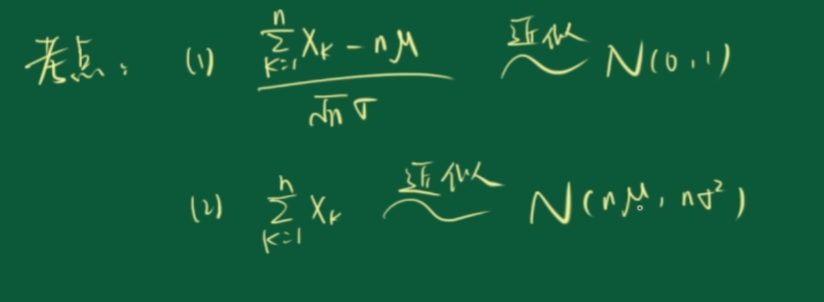 考点：(1) $\frac{\sum_{k=1}^{n} X_k - n\mu}{\sqrt{n}\sigma}$ $\overset{近似}{\sim}$ N(0,1)
(2) $\sum_{k=1}^{n} X_k$ $\overset{近似}{\sim}$ N(nμ, nσ²)